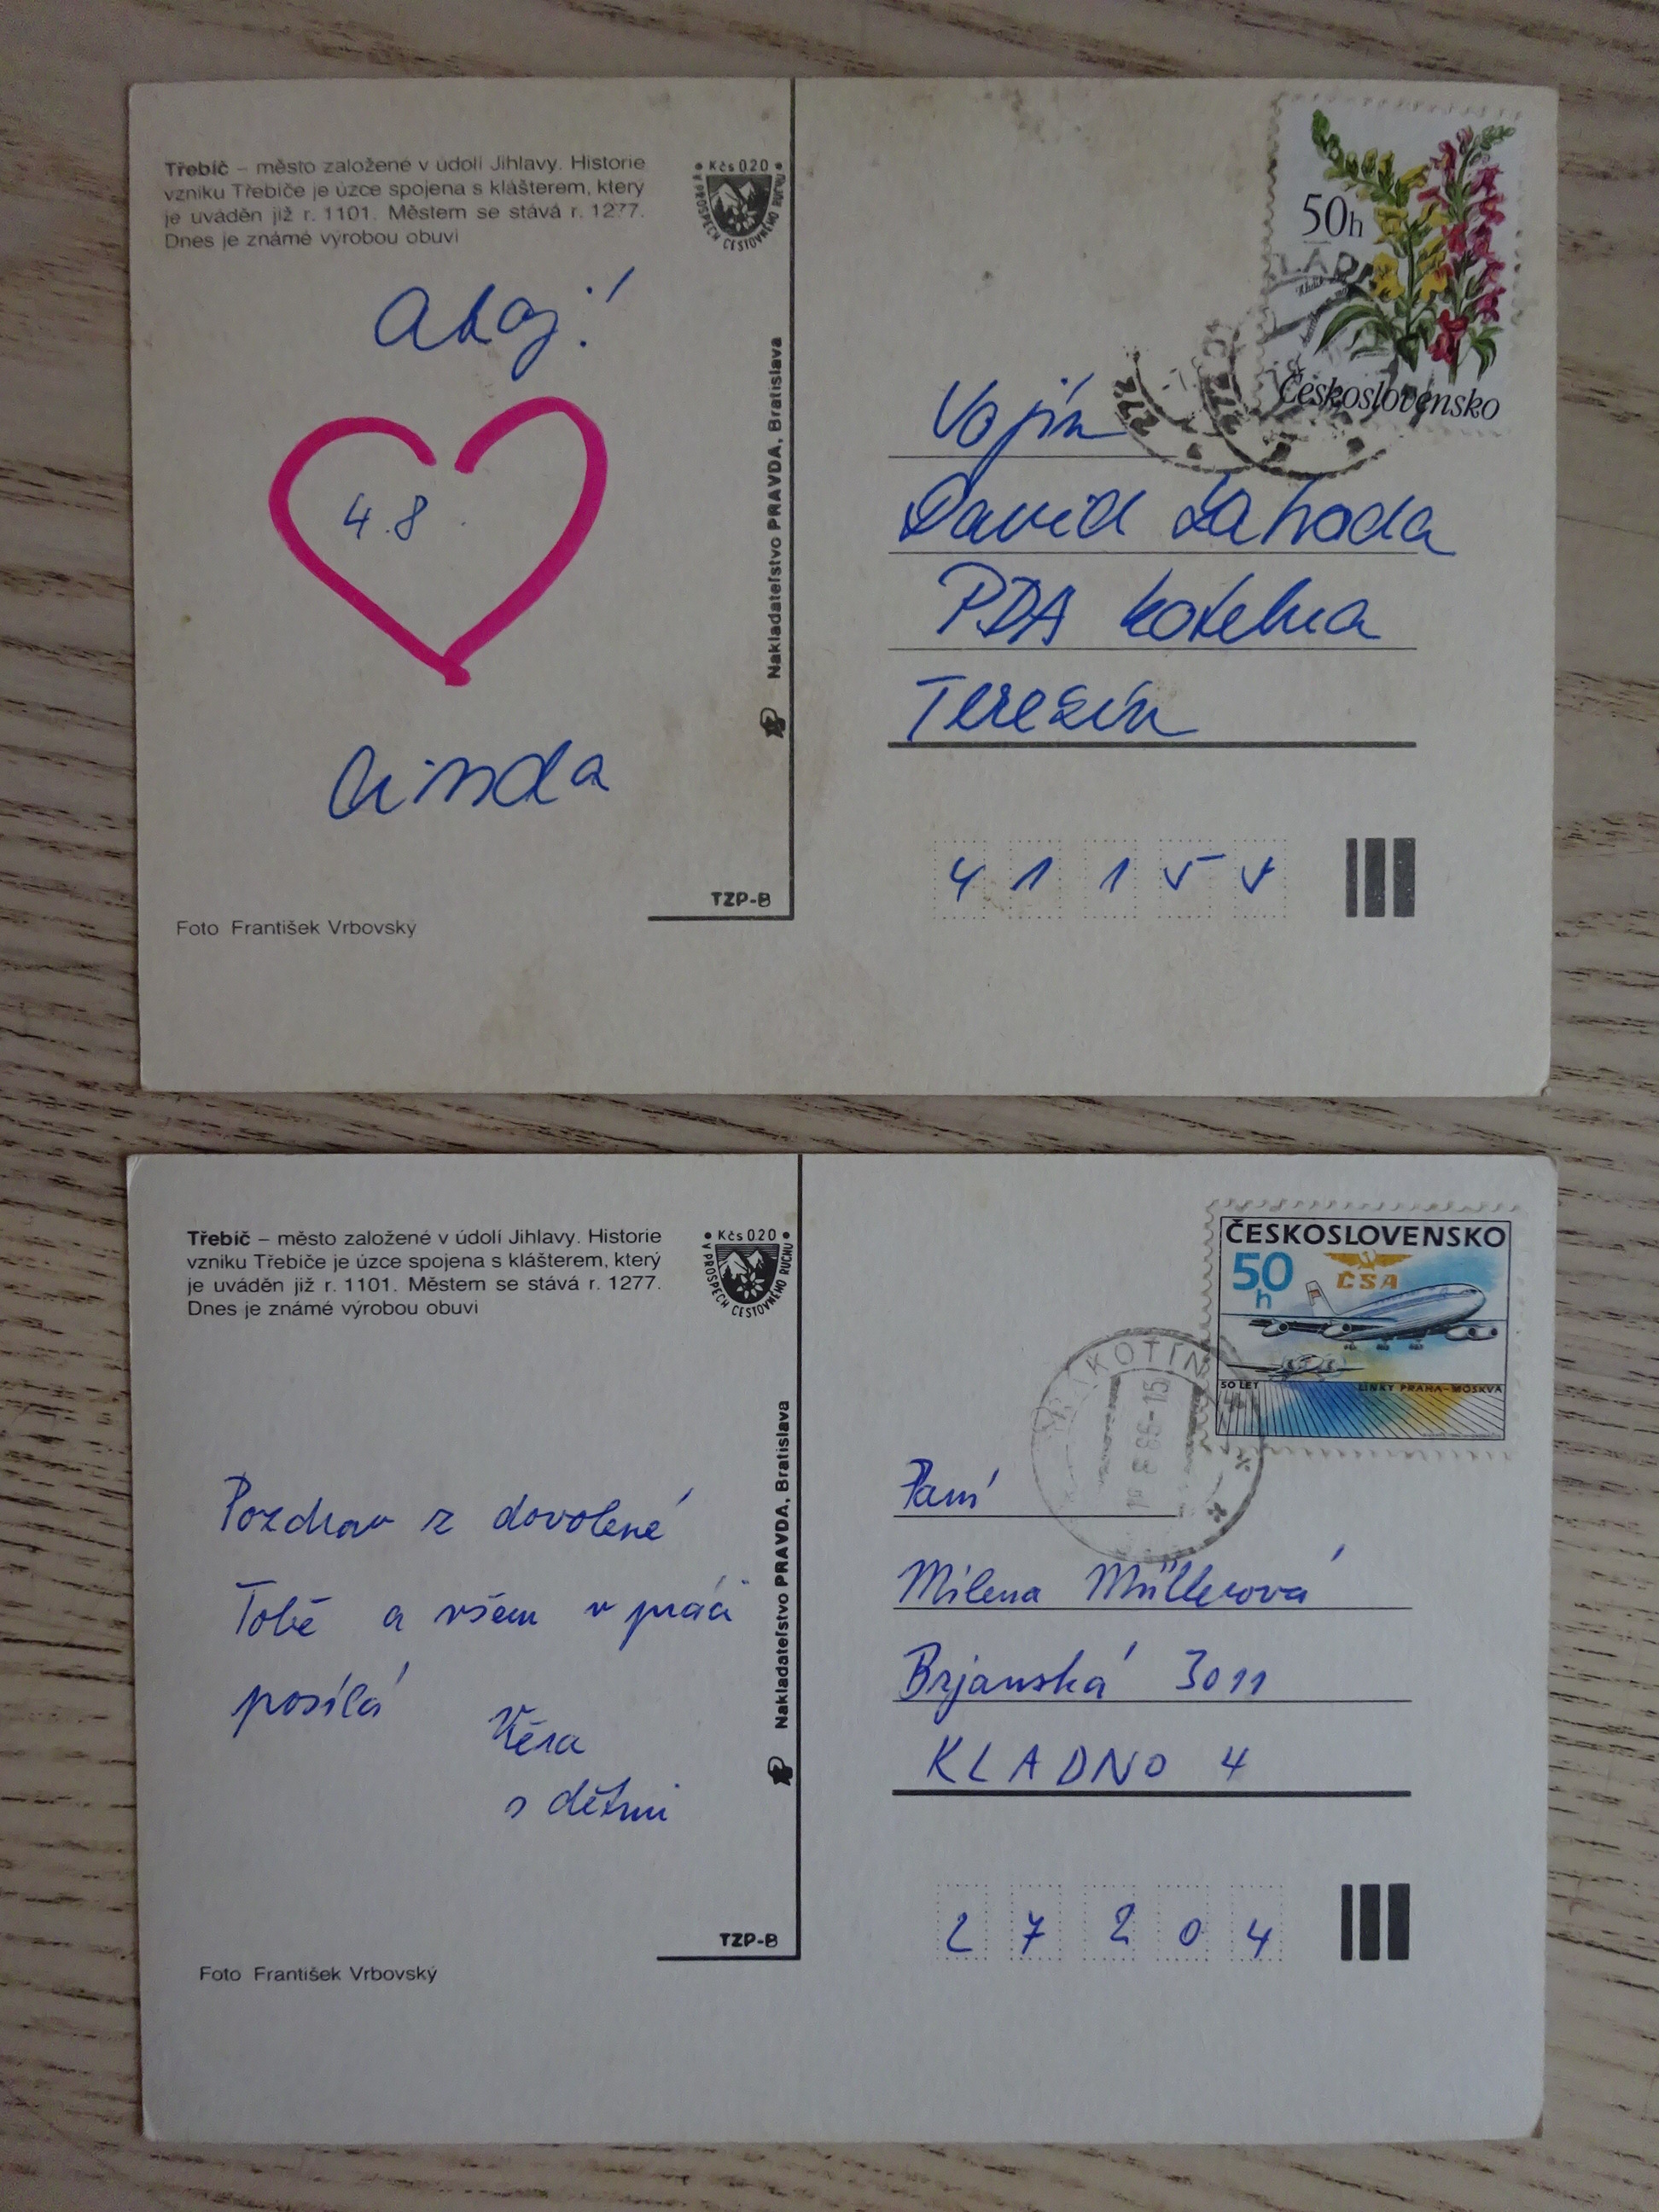 Třebíč – město založené v údolí Jihlavy. Historie
vzniku Třebíče je úzce spojena s klášterem, který
je uváděn již r. 1101. Městem se stává r. 1277.
Dnes je známé výrobou obuvi
• Kčs 0.20 •
V PROSPĚCH CESTOVNÉHO RUCHU
Ahoj!
4.8.
Linda
Nakladateľstvo PRAVDA, Bratislava
TZP-8
Foto František Vrbovský
50h
Československo
272
272
Vojín
David Lahoda
PDA kotelna
Terezín
4 1 1 5 5
Třebíč – město založené v údolí Jihlavy. Historie
vzniku Třebíče je úzce spojena s klášterem, který
je uváděn již r. 1101. Městem se stává r. 1277.
Dnes je známé výrobou obuvi
• Kčs 0.20 •
V PROSPĚCH CESTOVNÉHO RUCHU
Pozdrav z dovolené
Tobě a všem v práci
posílá
Věra
s dětmi
Nakladateľstvo PRAVDA, Bratislava
TZP-8
Foto František Vrbovský
ČESKOSLOVENSKO
50h
ČSA
50 LET LINKY PRAHA–MOSKVA
Paní
Milena Müllerová
Brjanská 3011
KLADNO 4
2 7 2 0 4